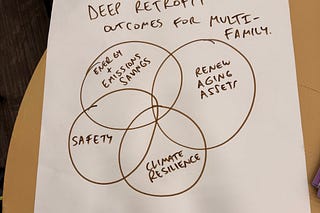 DEEP RETROFIT
OUTCOMES FOR MULTI-
FAMILY.
ENERGY
+
EMISSIONS
SAVINGS
RENEW
AGING
ASSETS
SAFETY
CLIMATE
RESILIENCE